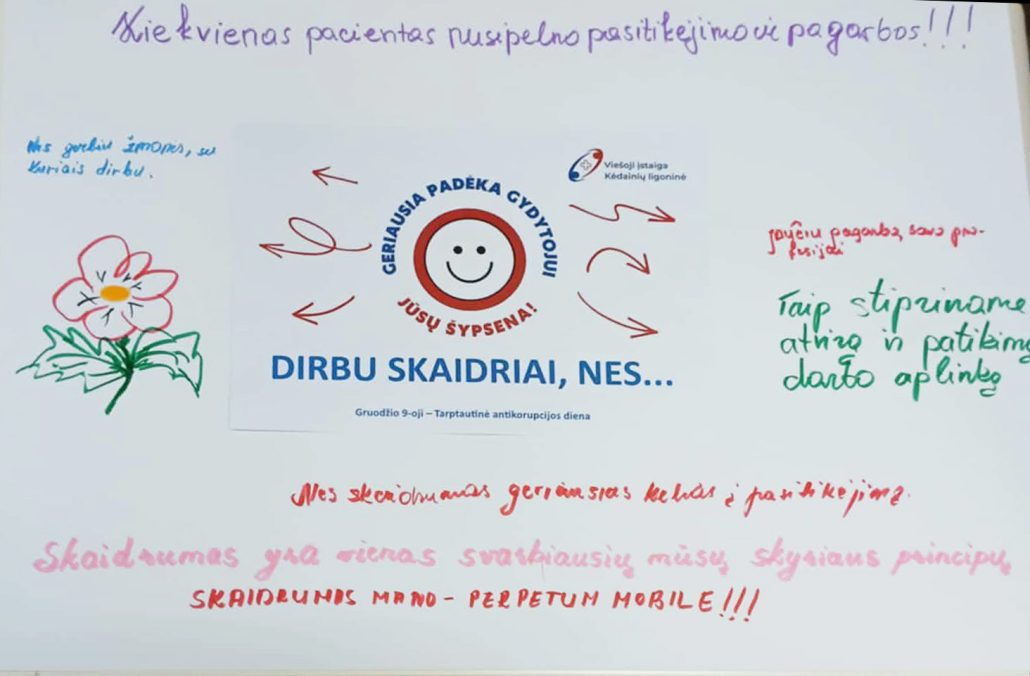 Kiekvienas pacientas nusipelno pasitikėjimo ir pagarbos!!!
Nes gerbiu žmones, su
kuriais dirbu.
Viešoji įstaiga
Kėdainių ligoninė
GERIAUSIA PADĖKA GYDYTOJUI
JŪSŲ ŠYPSENA!
jaučiu pagarbą savo pro-
fesijai
Taip stipriname
atvirą ir patikimą
darbo aplinką
DIRBU SKAIDRIAI, NES...
Gruodžio 9-oji – Tarptautinė antikorupcijos diena
Nes skaidrumas geriausias kelias į pasitikėjimą.
Skaidrumas yra vienas svarbiausių mūsų skyriaus principų
SKAIDRUMAS MANO - PERPETUM MOBILE!!!